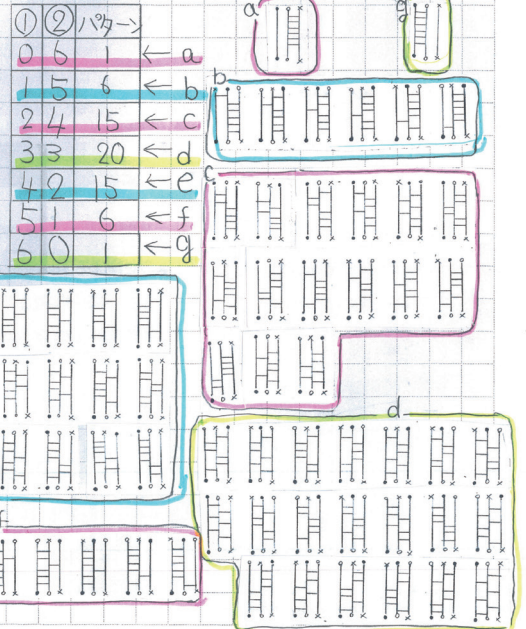 ① ② パターン
0 6 1 ← a
1 5 6 ← b
2 4 15 ← c
3 3 20 ← d
4 2 15 ← e
5 1 6 ← f
6 0 1 ← g
a
g
b
c
d